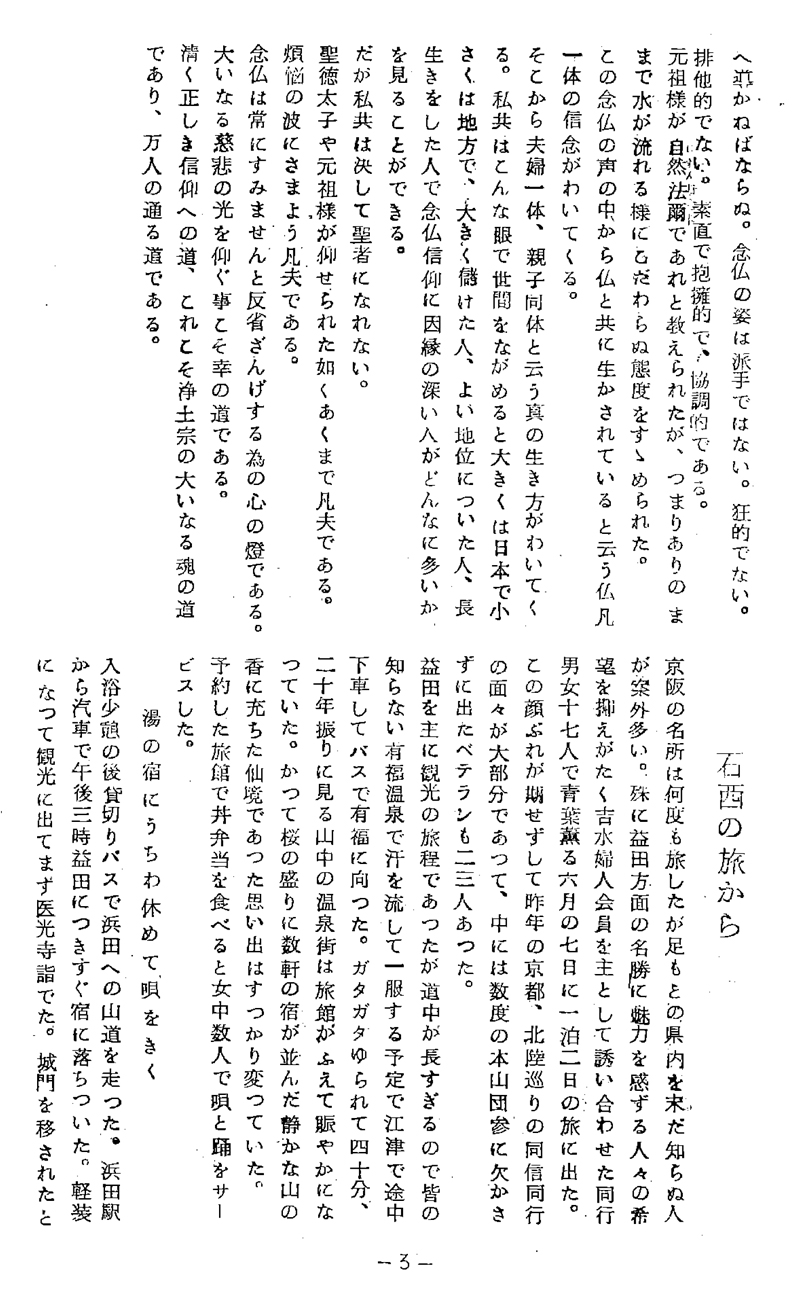 へ導かねばならぬ。念仏の姿は派手ではない。狂的でない。
排他的でない。素直で抱擁的で、協調的である。
元祖様が自然法爾であれと教えられたが、つまりありのま
まで水が流れる様にこだわらぬ態度をすゝめられた。
この念仏の声の中から仏と共に生かされていると云う仏凡
一体の信念がわいてくる。
そこから夫婦一体、親子同体と云う真の生き方がわいてく
る。私共はこんな眼で世間をながめると大きくは日本で小
さくは地方で、大きく儲けた人、よい地位についた人、長
生きをした人で念仏信仰に因縁の深い人がどんなに多いか
を見ることができる。
だが私共は決して聖者になれない。
聖徳太子や元祖様が仰せられた如くあくまで凡夫である。
煩悩の波にさまよう凡夫である。
念仏は常にすみませんと反省ざんげする為の心の燈である。
大いなる慈悲の光を仰ぐ事こそ幸の道である。
清く正しき信仰への道、これこそ浄土宗の大いなる魂の道
であり、万人の通る道である。
石西の旅から
京阪の名所は何度も旅したが足もとの県内を末だ知らぬ人
が案外多い。殊に益田方面の名勝に魅力を感ずる人々の希
望を抑えがたく吉水婦人会員を主として誘い合わせた同行
男女十七人で青葉薫る六月の七日に一泊二日の旅に出た。
この顔ぶれが期せずして昨年の京都、北陸巡りの同信同行
の面々が大部分であつて、中には数度の本山団参に欠かさ
ずに出たベテランも二三人あつた。
益田を主に観光の旅程であつたが道中が長すぎるので皆の
知らない有福温泉で汗を流して一服する予定で江津で途中
下車してバスで有福に向つた。ガタガタゆられて四十分、
二十年振りに見る山中の温泉街は旅館がふえて賑やかにな
つていた。かつて桜の盛りに数軒の宿が並んだ静かな山の
香に充ちた仙境であつた思い出はすつかり変つていた。
予約した旅館で丼弁当を食べると女中数人で唄と踊をサー
ビスした。
湯の宿にうちわ休めて唄をきく
入浴少憩の後貸切りバスで浜田への山道を走つた。浜田駅
から汽車で午後三時益田につきすぐ宿に落ちついた。軽装
になつて観光に出てまず医光寺詣でた。城門を移されたと
－3－